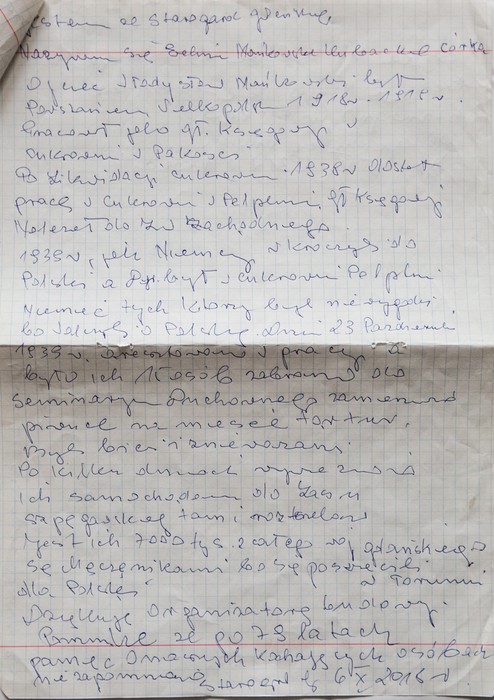 Jestem ze Starogard gdański,
Nazywam się Mańkowska Kubacka córka
Ojciec Władysław Mańkowski był
Powstańcem Wielkopolsk 1918r. 1919r.
Pracował jako gł. Księgowy w
cukrowni w Pakości
Po likwidacji cukrowni 1938r dostał
pracę w cukrowni w Pelplini gł Księgowy
Należał do Zw Zachodniego
1939r, jak Niemcy wkroczyli do
Polski a był w cukrowni Pelplin
Niemcć tych który byli niewygodni
bo walczyli o Polskę. Dnia 23 Październik
1939r. aresztowano w pracy
było ich 16 osób zabrano do
Seminarjum Duchownego zamieniono
piwnice na miejsce tortur,
Byli bici i znieważani.
Po kilku dniach wywieziono
ich samochodem do Lasu
szpęgawskiego tam i rozstrzelano
Jest ich 7000 tys. z całego woj gdańskiego
są Męczęnikami bo się poświęcili
dla Polski w Toruniu
Dziękuję Organizatorą budowy
Pomnika że po 79 latach
pamięć o Kochających osóbach
niezapomniano Starogard 6 X 2018r